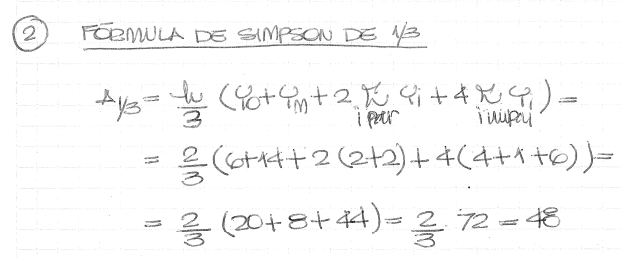 ② FÓRMULA DE SIMPSON DE 1/3
A1/3 = h/3 (Y0 + Yn + 2 Σ Yi + 4 Σ Yi) =
i par i impar
= 2/3 (6+14+2(2+2)+4(4+1+6)) =
= 2/3 (20+8+44) = 2/3 · 72 = 48